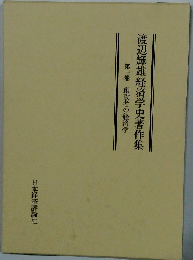 渡辺輝雄経済学史著作集
第一巻 重農学の経済学
日本経済評論社